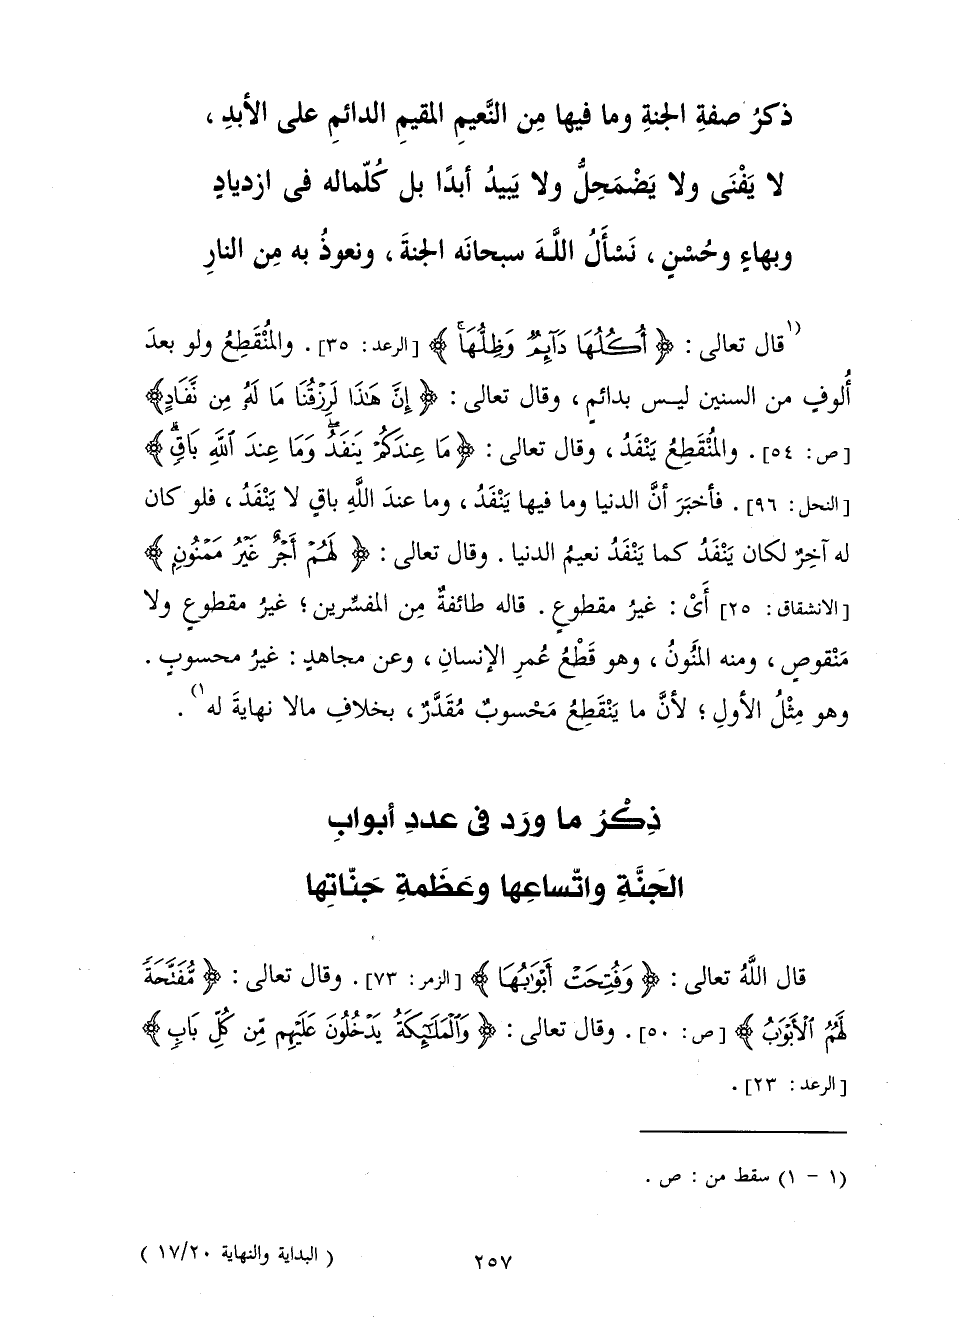 ذكرُ صفةِ الجنةِ وما فيها مِن النَّعيمِ المقيمِ الدائمِ على الأبدِ ،
لا يَفْنَى ولا يَضْمَحِلُّ ولا يَبِيدُ أبدًا بل كُلّماله فى ازديادٍ
وبهاءٍ وحُسْنٍ ، نَسْأَلُ اللَّهَ سبحانَه الجنةَ ، ونعوذُ به مِن النارِ
(١قال تعالى : ﴿ أُكُلُهَا دَآئِمٌ وَظِلُّهَاۚ ﴾ [الرعد: ٣٥] . والمُنْقَطِعُ ولو بعدَ
أُلوفٍ من السنين ليس بدائمٍ ، وقال تعالى : ﴿ إِنَّ هَٰذَا لَرِزْقُنَا مَا لَهُۥ مِن نَّفَادٍ﴾
[ص: ٥٤] . والمُنْقَطِعُ يَنْفَدُ ، وقال تعالى : ﴿ مَا عِندَكُمْ يَنفَدُ وَمَا عِندَ ٱللَّهِ بَاقٍۗ ﴾
[النحل: ٩٦] . فأخبَرَ أنَّ الدنيا وما فيها يَنْفَدُ ، وما عندَ اللَّهِ باقٍ لا يَنْفَدُ ، فلو كان
له آخِرٌ لكان يَنْفَدُ كما يَنْفَدُ نعيمُ الدنيا . وقال تعالى : ﴿ لَهُمْ أَجْرٌ غَيْرُ مَمْنُونٍ ﴾
[الانشقاق: ٢٥] أَىْ : غيرُ مقطوعٍ . قاله طائفةٌ مِن المفسِّرين ؛ غيرُ مقطوعٍ ولا
مَنْقوصٍ ، ومنه المَنُونُ ، وهو قَطْعُ عُمرِ الإنسانِ ، وعن مجاهدٍ : غيرُ محسوبٍ .
وهو مِثْلُ الأولِ ؛ لأنَّ ما يَنْقَطِعُ مَحْسوبٌ مُقَدَّرٌ ، بخلافِ مالا نهايةَ له١) .
ذِكْرُ ما ورَد فى عددِ أبوابِ
الجَنَّةِ واتّساعِها وعَظَمةِ جَنّاتِها
قال اللَّهُ تعالى : ﴿ وَفُتِحَتْ أَبْوَٰبُهَا ﴾ [الزمر: ٧٣] . وقال تعالى : ﴿ مُّفَتَّحَةً
لَّهُمُ ٱلْأَبْوَٰبُ ﴾ [ص: ٥٠] . وقال تعالى : ﴿ وَٱلْمَلَٰٓئِكَةُ يَدْخُلُونَ عَلَيْهِم مِّن كُلِّ بَابٍ ﴾
[الرعد: ٢٣] .
(١ - ١) سقط من : ص .
٢٥٧ ( البداية والنهاية ١٧/٢٠ )